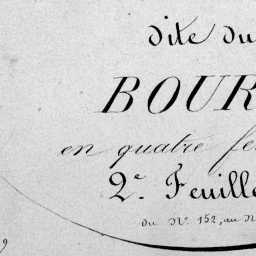 dite du
BOUR
en quatre fe
2e. Feuille
du N° 152, au N
9